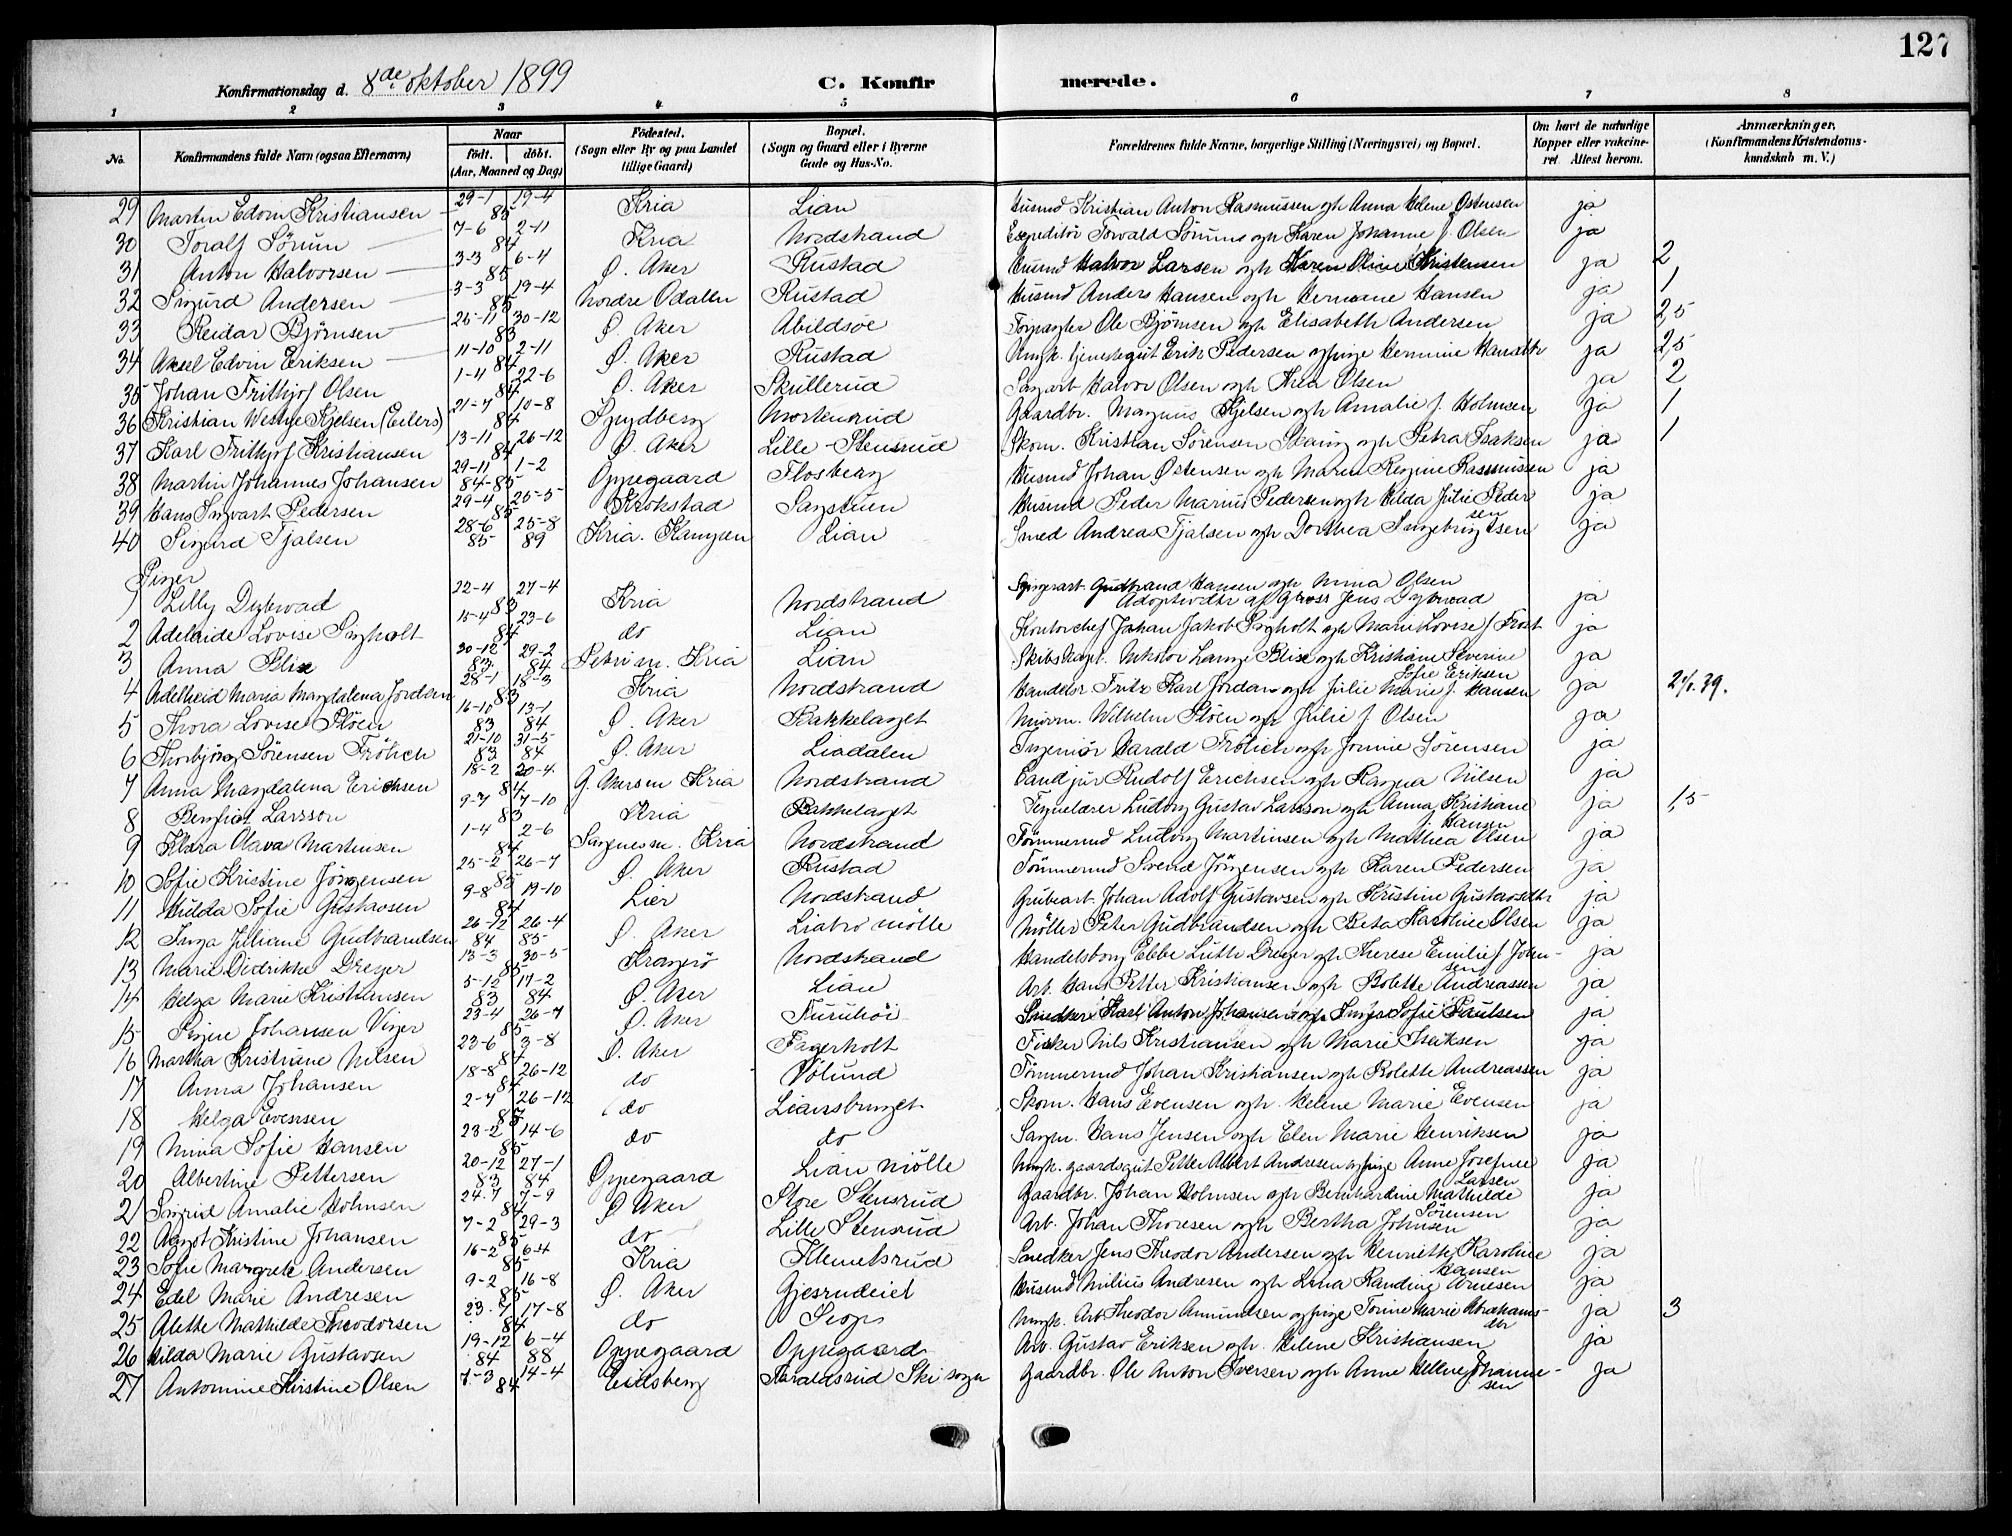 127
Konfirmationsdag d. 8de oktober 1899 C. Konfirmerede.
1 2 3 4 5 6 7 8
No. Konfirmandens fulde Navn (ogsaa Efternavn) Naar født. døbt. (Aar, Maaned og Dag) Fødested. (Sogn eller By og paa Landet tillige Gaard) Bopæl. (Sogn og Gaard eller i Byerne Gade og Hus-No. Forældrenes fulde Navne, borgerlige Stilling (Næringsvei) og Bopæl. Om havt de naturlige Kopper eller vakcineret Attest herom. Anmærkninger. (Konfirmandens Kristendomskundskab m. V.)
29 Martin Edvin Kristiansen 29-1 19-4 85 Kria Lian Husmd Kristian Anton Rasmussen ogh Anna Helene Østensen ja
30 Toralf Sörum 7-6 2-11 84 Kria Nordstrand Expeditör Torvald Sörum ogh Karen Johanne f. Olsen ja
31 Anton Halvorsen 3-3 6-4 85 Ø. Aker Rustad Husmd Halvor Larsen ogh Karen Oline Kristensen ja 2
32 Sigurd Andersen 3-3 19-4 85 Nordre Odalen Rustad Husmd Anders Hansen ogh Hermane Hansen ja 1
33 Reidar Björnsen 26-11 30-12 83 Ø. Aker Abildsöe Ole Björnsen ogh Elisabeth Andersen ja 2,5
34 Aksel Edvin Eriksen 11-10 2-11 84 Ø. Aker Rustad Ungk. tjenestegut Erik Pedersen og pige Hermine Hansdtr ja 2,5
35 Johan Frithjof Olsen 1-4 22-6 84 Ø. Aker Skullerud Sagarb Halvor Olsen ogh Thea Olsen ja 2
36 Kristian Westye Kjelsen (Eilers) 21-7 10-8 84 Spydberg Mortensrud Gaardbr. Magnus Kjelsen ogh Amalie f. Holmsen ja 1
37 Karl Frithjof Kristiansen 13-11 26-12 84 Ø. Aker Lille-Stensrud Skom. Kristian Sörensen Skaring ogh Petra Isaksen ja 1
38 Martin Johannes Johansen 29-11 1-2 84-85 Oppegaard Flosberg Husmd Johan Østensen ogh Maren Regine Rasmussen ja
39 Hans Ingvart Pedersen 29-4 25-5 85 Krokstad Sagstuen Husmd Peder Marius Pedersen ogh Hilda Julie Pedersen ja
40 Sigurd Tjalsen 28-6 85 25-8 89 Kria. Kampen Lian Smed Andreas Tjalsen ogh Dorthea Ingebrigtsen ja
Piger
1 Lilly Dybwad 22-4 27-4 83 Kria Nordstrand Gudbrand Hansen og Anna Olsen
Adoptivdtr af Gross Jens Dybwad ja
2 Adelaide Lovise Ingholt 15-4 23-6 84 do Lian Kontorchef Johan Jakob Ingholt ogh Marie Lovise f Frost ja
3 Anna Blix 30-12 83 29-2 84 Petri m. Kria Lian Skibskapt. Nikolai Lange Blix ogh Kristiane Severine Sofie Eriksen ja
4 Adelheid Maria Magdalena Jordan 28-1 18-3 83 Kria Nordstrand Handelsr Fritz Karl Jordan ogh Julie Marie f. Hansen ja 21/1. 39.
5 Thora Lovise Plöen 16-10 83 13-1 84 Ø. Aker Bækkelaget Murm. Wilhelm Plöen ogh Julie f Olsen ja
6 Thorbjörg Sörensen Frölich 21-10 83 31-5 84 Ø. Aker Liadalen Ingeniör Harald Frölich ogh Jonnie Sörensen ja
7 Anna Magdalena Erichsen 18-2 20-4 84 G. Akersm Kria Nordstrand Candjur Rudolf Erichsen ogh Ragna Nilsen ja
8 Benfiat Larsson 9-7 7-10 83 Kria Bækkelaget Tegnelærer Ludvig Gustav Larsson ogh Anna Kristiane f Hansen ja 1,5
9 Klara Olava Martinsen 1-4 2-6 84 Sagenes m. Kria Nordstrand Tömmermd Ludvig Martinsen ogh Mathea Olsen ja
10 Sofie Kristine Jörgensen 25-2 26-7 85 Ø. Aker Rustad Tömmermd Svend Jörgensen ogh Karen Pedersen ja
11 Hulda Sofie Gustavsen 9-8 19-10 84 Lier Nordstrand Grubearb. Johan Adolf Gustavsen ogh Kristine Gustavsdtr ja
12 Inga Juliane Gudbrandsen 26-12 84 26-4 85 Ø. Aker Liabro mölle Möller Peter Gudbrandsen ogh Beta Karoline Olsen ja
13 Marie Didrikke Dreyer 13-3 30-5 85 Kragerö Nordstrand Handelsborg Ebbe Luth Dreyer ogh Therese Emilie f Johnsen ja
14 Helga Marie Kristiansen 5-12 83 17-2 84 Ø. Aker Lian Arb. Hans Petter Kristiansen ogh Bolette Andreassen ja
15 Signe Johansen Viger 23-4 26-7 85 Ø. Aker Furuhöi Snedker Karl Anton Johansen ogh Inger Sofie Paulsen ja
16 Martha Kristiane Nilsen 23-6 3-8 84 Ø. Aker Fagerholt Fisker Nils Kristiansen ogh Marie Isaksen ja
17 Anna Johansen 18-8 26-12 84 do Völund Tömmermd Johan Kristiansen ogh Bolette Andreassen ja
18 Helga Evensen 2-7 26-12 87 do Liansbruget Skom. Hans Evensen ogh. Helene Marie Evensen ja
19 Nina Sofie Hansen 23-2 14-6 85 do do Sagm. Hans Jensen ogh Elen Marie Henriksen ja
20 Albertine Pettersen 20-12 83 27-1 84 Oppegaard Lian mölle Ungk. gaardsgut Petter Albert Andresen og pige Anne Josefine Larsen ja
21 Sigrid Amalie Holmsen 24-7 7-9 84 Ø Aker Store Stensrud Gaardbr. Johan Holmsen ogh Bernhardine Mathilde Sörensen ja
22 Aagot Kristine Johansen 7-2 29-3 85 do Lille Stensrud Arb. Johan Thoresen ogh Bertha Johnsen ja
23 Sofie Margrete Andersen 16-2 6-4 85 Kria Klemetsrud Snedker Jens Theodor Andersen ogh Henriette Karoline Hansen ja
24 Edel Marie Andresen 9-2 16-8 85 Ø. Aker Gjesrudeiet Husmd Milius Andresen ogh Lina Randine Arnesen ja
25 Alette Mathilde Theodorsen 23-7 17-8 84 do Skogs Ungk. Arb Theodor Amundsen og pige Torine Marie Abrahamsdtr ja 3
26 Hilda Marie Gustavsen 19-12 84 6-4 88 Oppegaard Oppegaard Arb. Gustav Eriksen ogh. Helene Kristiansen ja
27 Antonine Kristine Olsen 7-3 14-4 84 Eidsberg Haraldsrud Ski sogn Gaardbr. Ole Anton Iversen ogh Anne Helene Johannesen ja